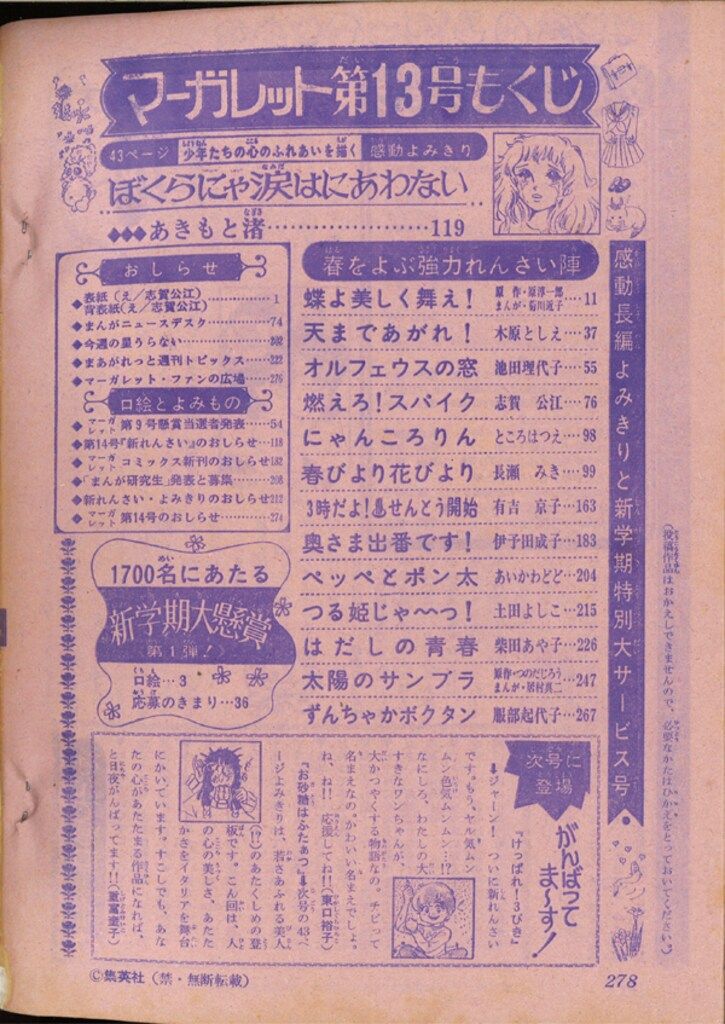 マーガレット第13号もくじ
43ページ 少年たちの心のふれあいを描く 感動よみきり
ぼくらにゃ涙はにあわない
◆◆◆あきもと渚……………………119
おしらせ
◆表紙(え/志賀公江)
背表紙(え/志賀公江)…………1
◆まんがニュースデスク………74
◆今週の星うらない…………202
◆まあがれっと週刊トピックス……222
◆マーガレット・ファンの広場……276
口絵とよみもの
◆マーガレット第9号懸賞当選者発表……54
◆第14号『新れんさい』のおしらせ…118
◆マーガレットコミックス新刊のおしらせ182
◆「まんが研究生」発表と募集……208
◆新れんさい・よみきりのおしらせ212
◆マーガレット第14号のおしらせ……274
1700名にあたる
新学期大懸賞
第1弾!
口絵…3
応募のきまり…36
春をよぶ強力れんさい陣
蝶よ美しく舞え! 原作・原淳一郎 まんが・菊川近子…11
天まであがれ! 木原としえ…37
オルフェウスの窓 池田理代子…55
燃えろ!スパイク 志賀公江…76
にゃんころりん ところはつえ…98
春びより花びより 長瀬みき…99
3時だよ!♨せんとう開始 有吉京子…163
奥さま出番です! 伊予田成子…183
ペッペとポン太 あいかわどど…204
つる姫じゃ〜〜っ! 土田よしこ…215
はだしの青春 柴田あや子…226
太陽のサンブラ 原作・つのだじろう まんが・居村真二…247
ずんちゃかボクタン 服部起代子…267
感動長編よみきりと新学期特別大サービス号
(投稿作品はおかえしできませんので、必要なかたはひかえをとっておいてください。)
次号に登場
がんばってま〜す!
『けっぱれ!3びき』
➡ジャーン! ついに新れんさい
です。もう、ヤル気ムン
ムン色気ムンムン…!?
なにしろ、わたしの大
すきなワンちゃんが、
大かつやくする物語なの。チビって
名まえなの。かわいい名まえでしょ。
ね、ね!! 応援してね!!(東口裕子)
『お砂糖はふたぁつ』➡次号の43ペ
ージよみきりは、若さあふれる美人
(!?)のあたくしめの登
板です。こん回は、人
の心の美しさ、あたた
かさをイタリアを舞台
にかいています。すこしでも、あな
たの心があたたまる作品になれば、
と日夜がんばってます!!(重富童子)
©集英社(禁・無断転載)
278